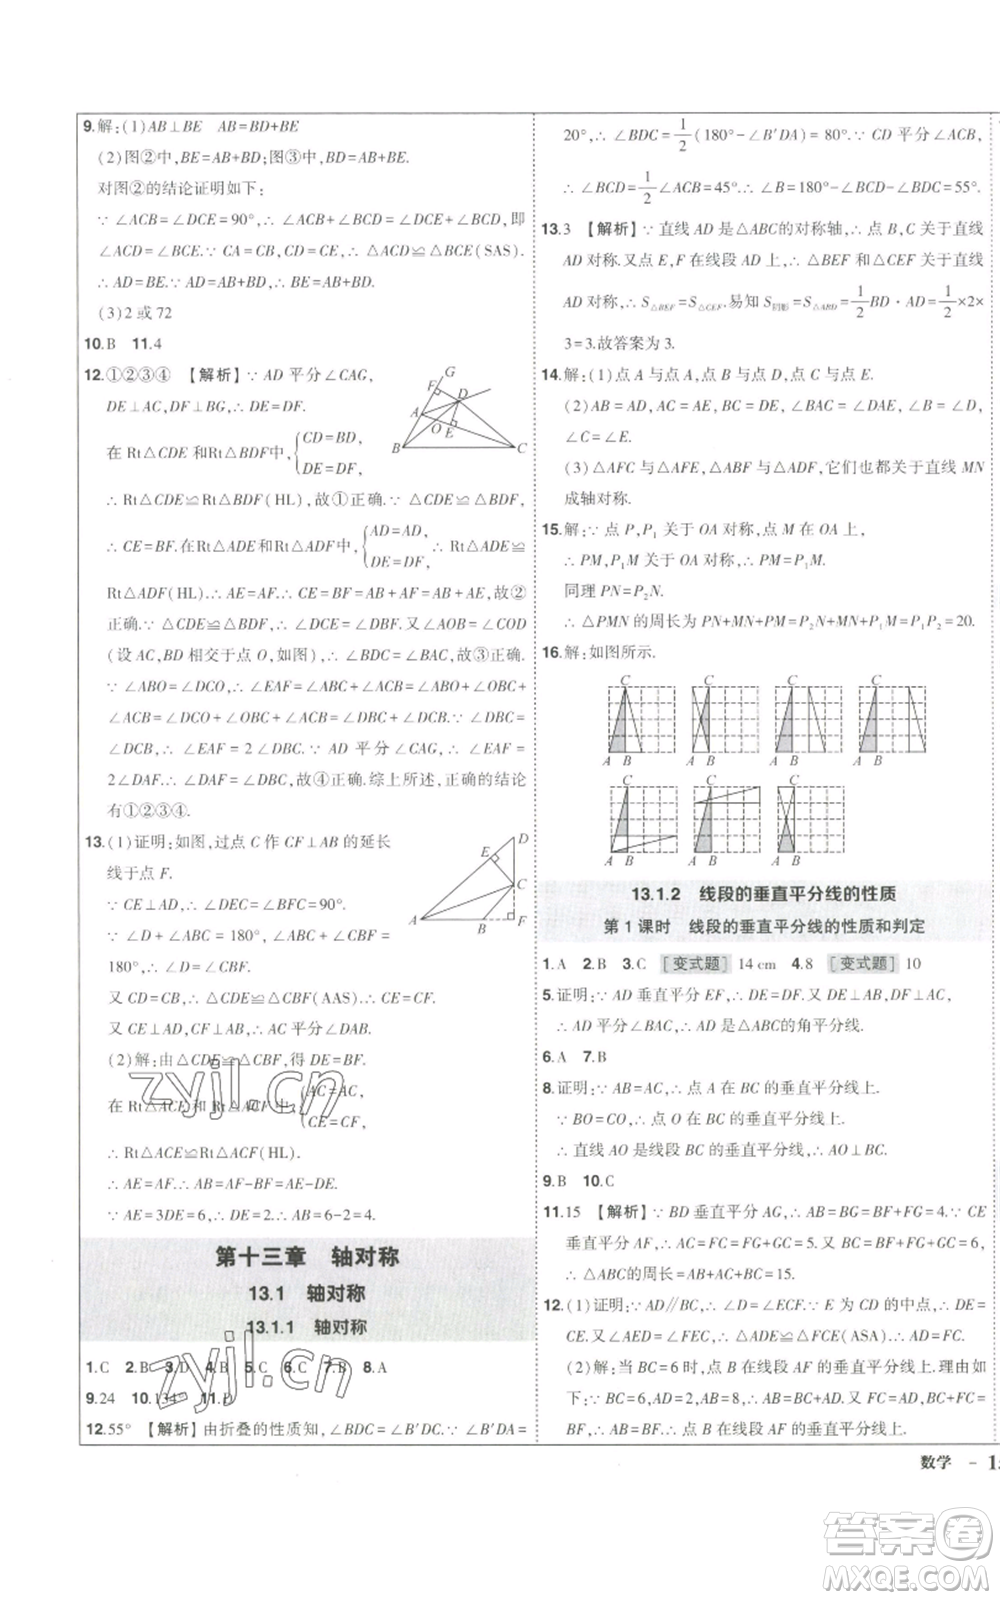 9.解:(1)AB⊥BE AB=BD+BE
(2)图②中,BE=AB+BD;图③中,BD=AB+BE.
对图②的结论证明如下:
∵∠ACB=∠DCE=90°,∴∠ACB+∠BCD=∠DCE+∠BCD,即
∠ACD=∠BCE.∵CA=CB,CD=CE,∴△ACD≌△BCE(SAS).
∴AD=BE.∵AD=AB+BD,∴BE=AB+BD.
(3)2 或 72
10.B 11.4
12.①②③④ 【解析】∵AD 平分∠CAG,
DE⊥AC,DF⊥BG,∴DE=DF.
在 Rt△CDE 和Rt△BDF 中,{CD=BD,
DE=DF.
∴Rt△CDE≌Rt△BDF(HL),故①正确.∵△CDE≌△BDF,
∴CE=BF.在Rt△ADE 和Rt△ADF 中,{AD=AD,
DE=DF,
∴Rt△ADE≌
Rt△ADF(HL).∴AE=AF.∴CE=BF=AB+AF=AB+AE,故②
正确.∵△CDE≌△BDF,∴∠DCE=∠ABO.又∠AOB=∠COD
(设 AC,BD 相交于点 O,如图),∴∠BDC=∠BAC,故③正确.
∵∠ABO=∠DCO,∴∠EAF=∠ABO+∠OBC+∠ACB.∴∠EAF=
∠ACB+∠DCO+∠OBC=∠DCB+∠OBC.∵CD=BD,∴∠OBC=
∠DCB,∴∠EAF=2∠DBC.∵AD 平分∠CAG,∴∠EAF=
2∠DAF.∴∠DAF=∠DBC,故④正确.综上所述,正确的结论
有①②③④.
G
F
D
A
O
E
B
C
13.(1)证明:如图,过点 C 作 CF⊥AB 的延长
线于点 F.
∵CE⊥AD,∴∠DEC=∠CFB=90°.
∵∠D+∠ABC=180°,∠CBF+∠ABC=
180°,∴∠D=∠CBF.
又 CD=CB,∴△CDE≌△CBF(AAS).∴CE=CF.
又 CE⊥AD,CF⊥AB,∴AC 平分∠DAB.
(2)解:由△CDE≌△CBF,得 DE=BF.
在 Rt△ACE 和 Rt△ACF 中,{AC=AC,
CE=CF,
∴Rt△ACE≌Rt△ACF(HL).
∴AE=AF.∴AB=AF-BF=AE-DE.
∵AE=3DE=6,∴DE=2,∴AB=6-2=4.
D
E
C
A
B
F
第十三章 轴对称
13.1 轴对称
13.1.1 轴对称
1.C 2.B 3.D 4.B 5.C 6.C 7.B 8.A
9.24 10.134° 11.D
12.55° 【解析】由折叠的性质知,∠BDC=∠B'DC.∵∠B'DA=
20°,∴∠BDC=1/2(180°-∠B'DA)=80°.∵CD 平分∠ACB,
∴∠BCD=1/2∠ACB=45°.∴∠B=180°-∠BDC-∠BCD=55°.
13.3 【解析】∵直线 AD 是△ABC的对称轴,∴点 B,C 关于直线
AD 对称.又点 E,F 在线段 AD 上,∴△BEF 和△CEF 关于直线
AD 对称,∴S△BEF=S△CEF.易知 S阴影=S△ABD=1/2BD·AD=1/2×2×
3=3.故答案为 3.
14.解:(1)点 A 与点 A,点 B 与点 D,点 C 与点 E.
(2)AB=AD,AC=AE,BC=DE,∠BAC=∠DAE,∠B=∠D,
∠C=∠E.
(3)△AFC 与△AFE,△ABF 与△ADF,它们也都关于直线 MN
成轴对称.
15.解:∵点 P,P₁ 关于 OA 对称,点 M 在 OA 上,
∴PM,P₁M 关于 OA 对称,∴PM=P₁M.
同理 PN=P₂N.
∴△PMN 的周长=PN+PM+MN=P₂N+P₁M+MN=P₁P₂=20.
16.解:如图所示.
C C C C
A B A B A B A B
C C C
A B A B A B
13.1.2 线段的垂直平分线的性质
第 1 课时 线段的垂直平分线的性质和判定
1.A 2.B 3.C [变式题] 14 cm 4.8 [变式题] 10
5.证明:∵AD 垂直平分 EF,∴DE=DF.又 DE⊥AB,DF⊥AC,
∴AD 平分∠BAC,∴AD 是△ABC的角平分线.
6.A 7.B
8.证明:∵AB=AC,∴点 A 在 BC 的垂直平分线上.
∵BO=CO,∴点 O 在 BC 的垂直平分线上.
∴直线 AO 是线段 BC 的垂直平分线,∴AO⊥BC.
9.B 10.C
11.15 【解析】∵BD 垂直平分 AG,∴AB=BG=4.∵CE
垂直平分 AF,∴AC=CF=5.又 BC=BG+CF-GF=6,
∴△ABC的周长=AB+AC+BC=15.
12.(1)证明:∵AD∥BC,∴∠ADE=∠ECF.∵E 为 CD 的中点,∴DE=
CE.又∠AED=∠FEC,∴△ADE≌△FCE(ASA).∴CF=AD.
(2)解:当 BC=6时,点 B 在线段 AF 的垂直平分线上.理由如
下:∵BC=6,AD=2,AB=8,∴AB=BC+AD.又 FC=AD,AB=BC+
FC=BF,∴点 B 在线段 AF 的垂直平分线上.
数学 -
zyjl.cn
zyjl.cn
答案卷
MXQE.COM